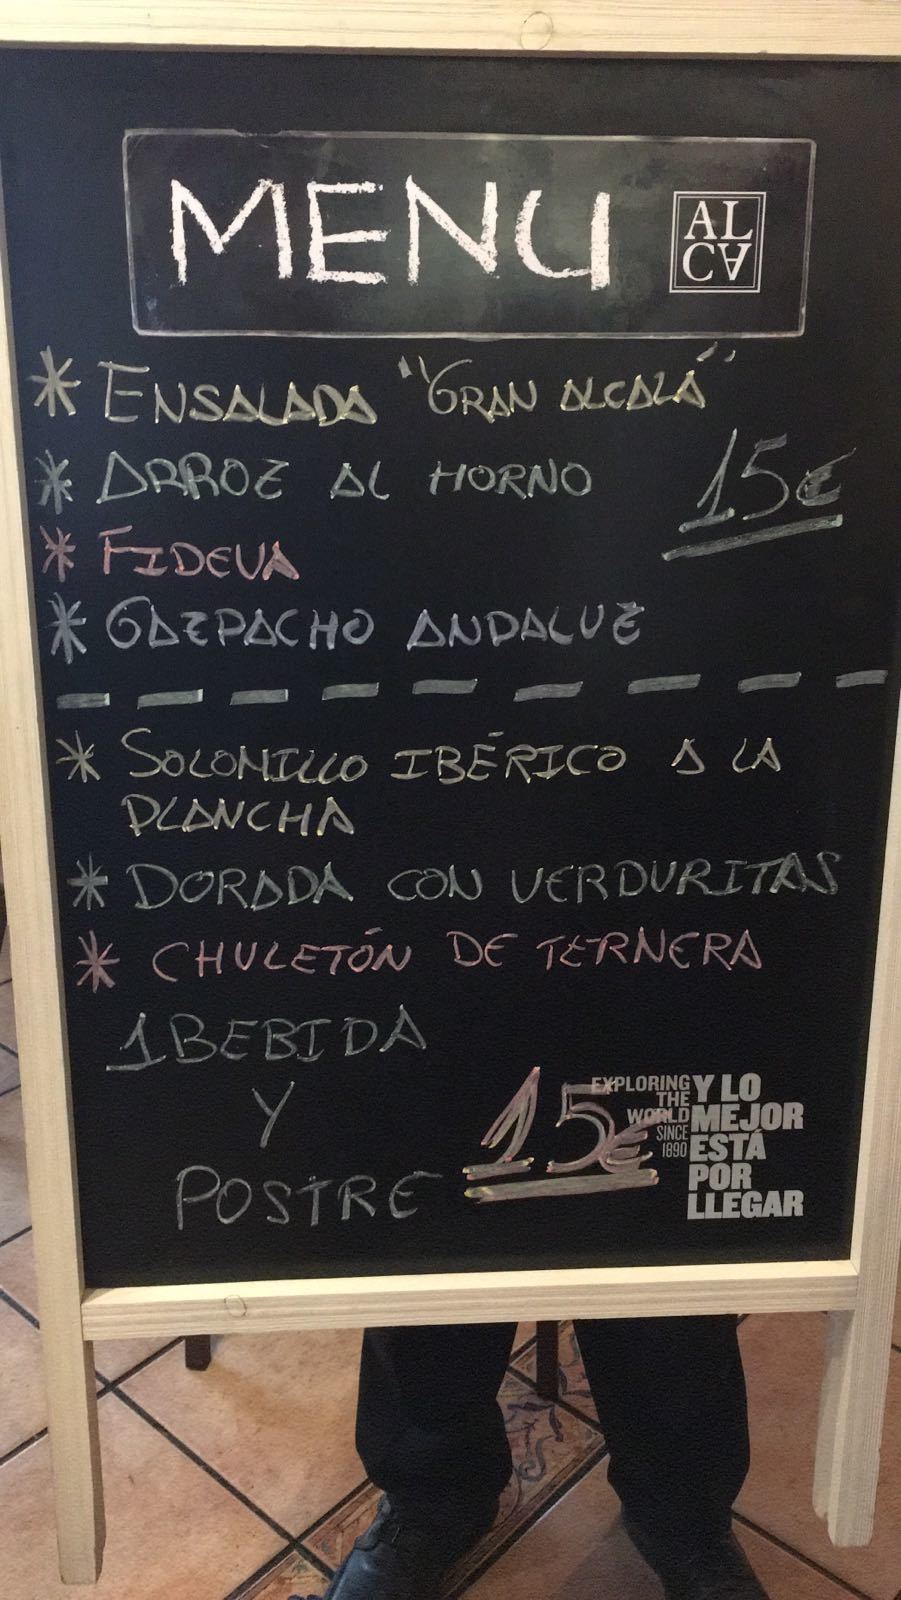 MENU
AL
CA
* ENSALADA "GRAN ALCALÁ"
* ARROZ AL HORNO
15€
* FIDEUA
* GAZPACHO ANDALUZ
* SOLOMILLO IBÉRICO A LA
PLANCHA
* DORADA CON VERDURITAS
* CHULETÓN DE TERNERA
1 BEBIDA
Y
POSTRE
15€
EXPLORING
THE
WORLD
SINCE
1890
Y LO
MEJOR
ESTÁ
POR
LLEGAR